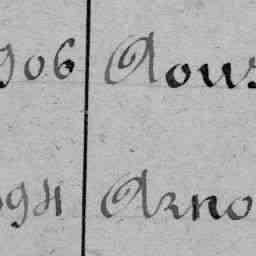 906 Aous
94 Arno